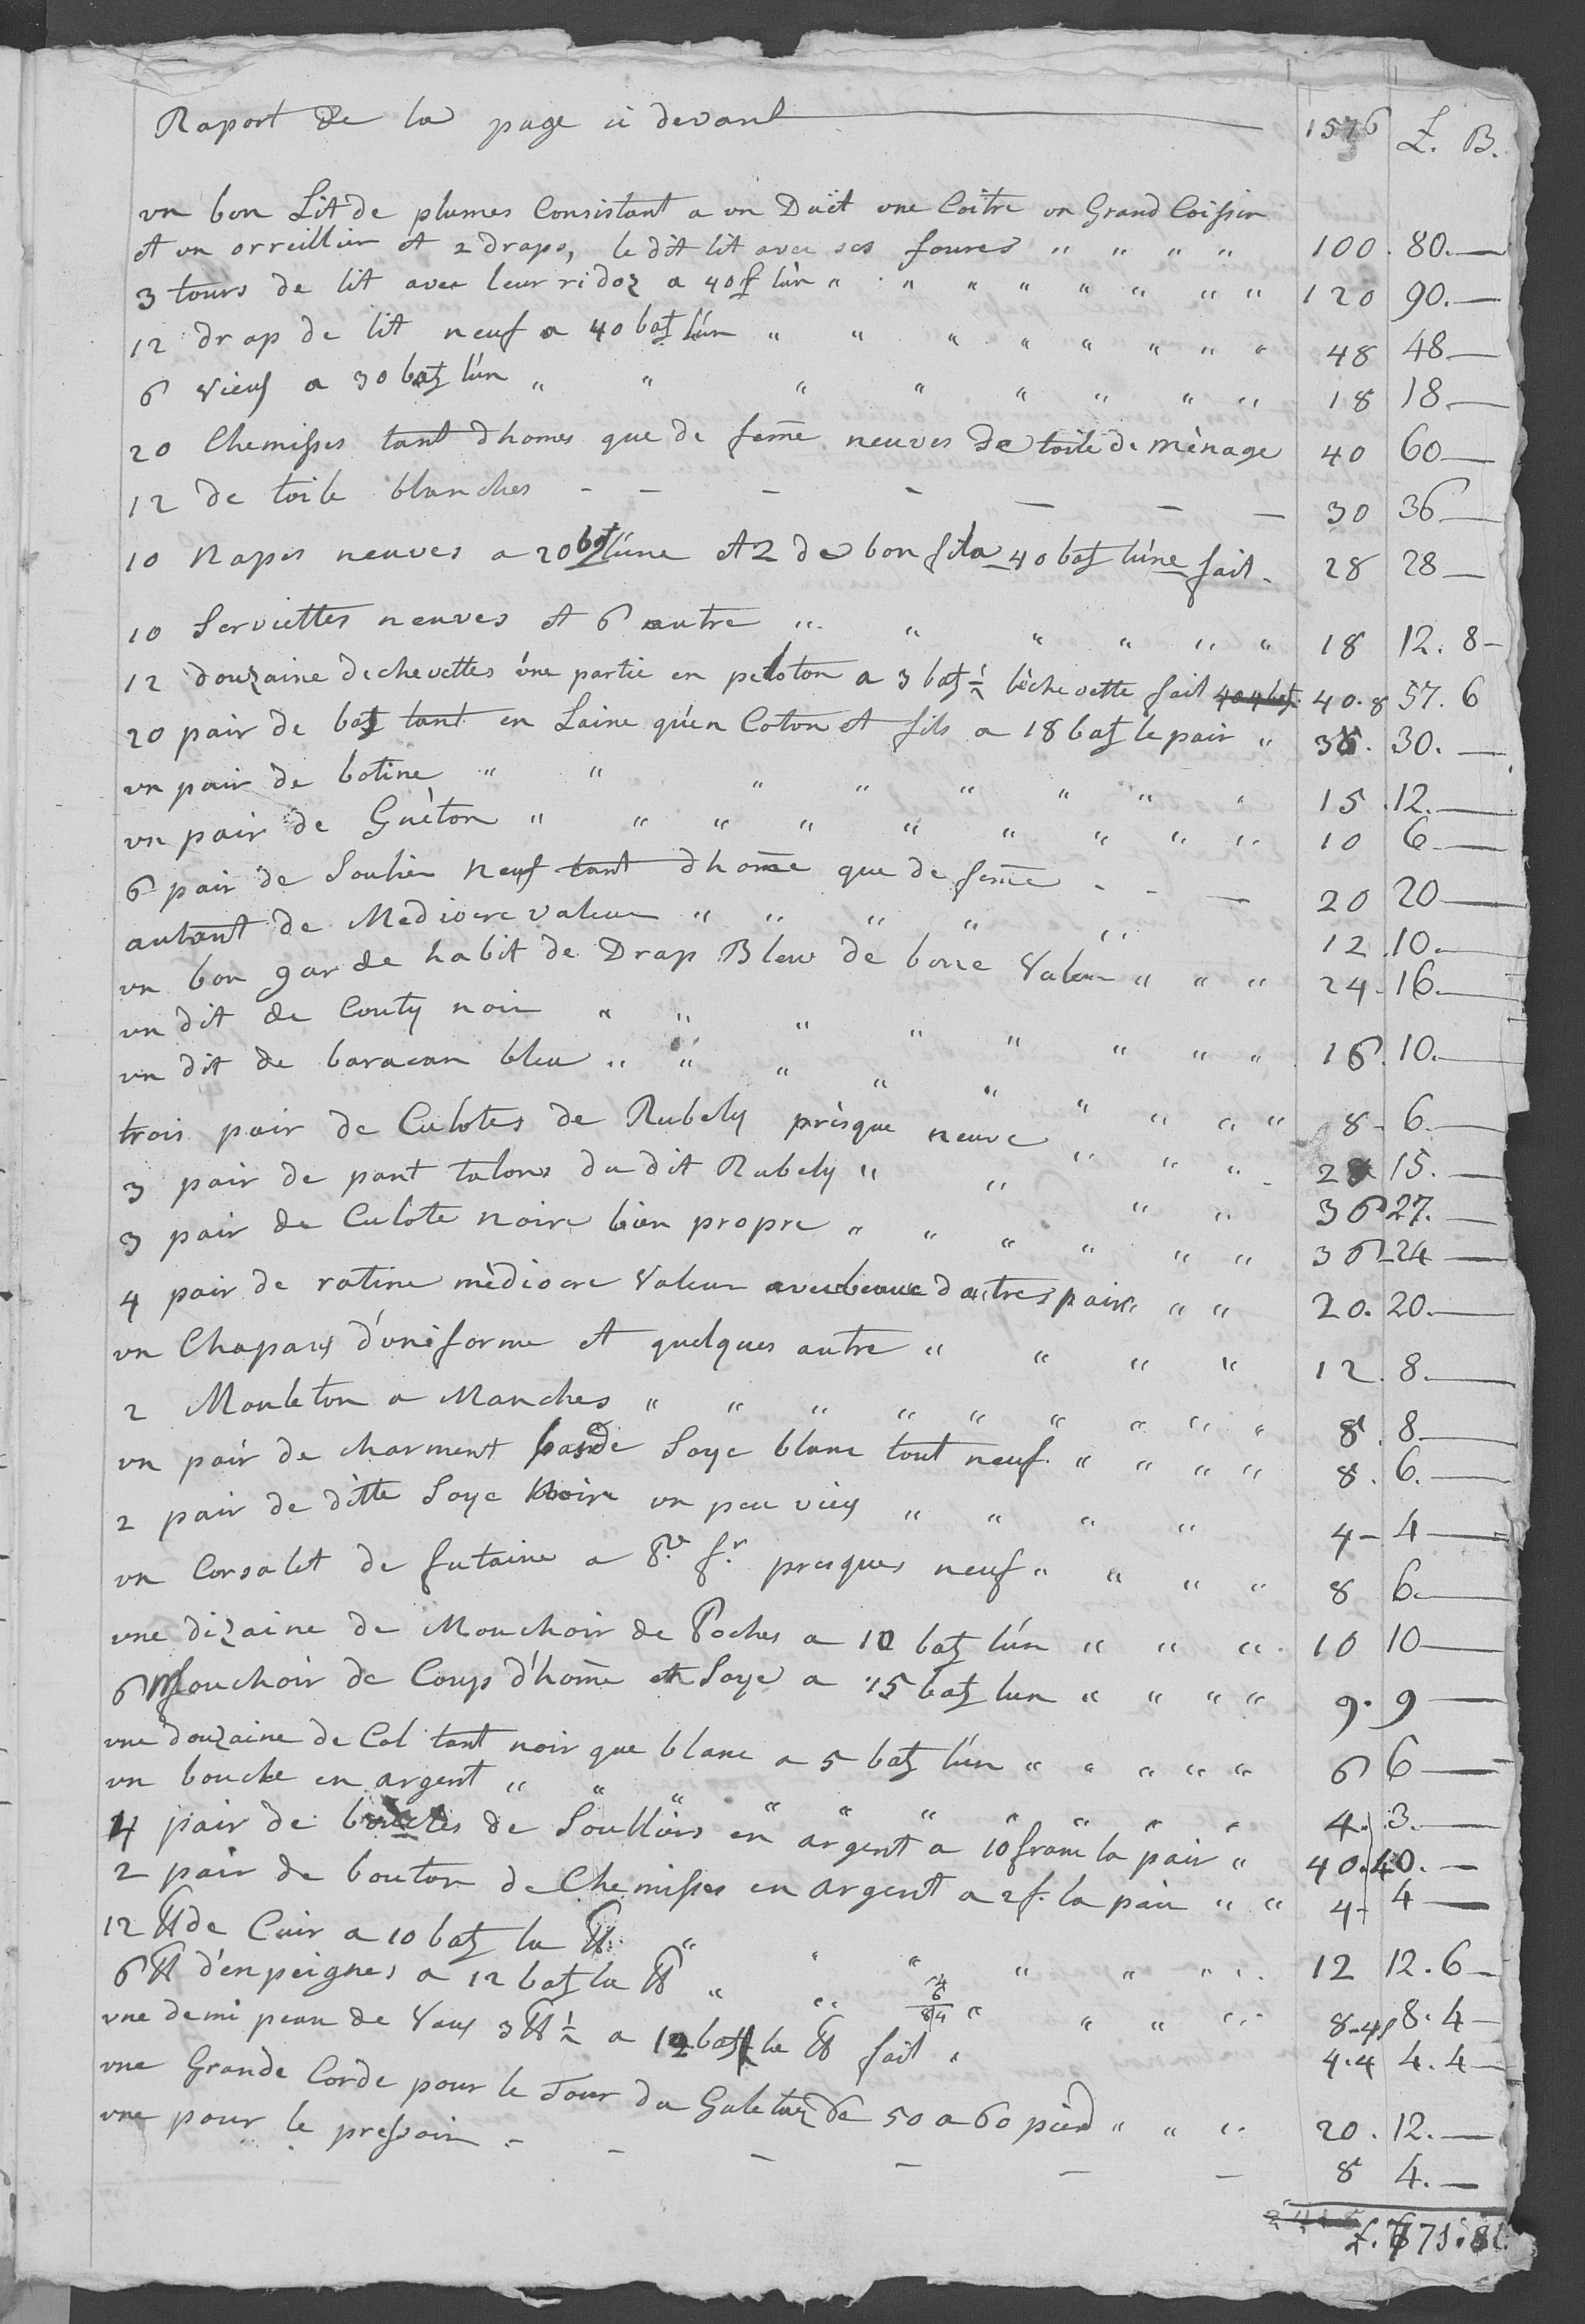 Raport de la page ci devant 1576 £. B.
un bon Lit de plumes Consistant a un Duit une Coitre un Grand Coissin
et un orreillier et 2 draps, le dit lit avec ses foures " " " " 100. 80.—
3 tours de lit avec leur ridoz a 40 f lún " " " " " " " " 120 90.—
12 drap de lit neuf a 40 batz lún " " " " " " " " 48 48—
6 vieux a 30 batz lún " " " " " " " " 18 18.—
20 Chemisses tant dhomes que de feme neuves de toile de mènage 40 60—
12 de toile blanches - - - - - - - 30 36—
10 Napes neuves a 20 batz lúne et 2 de bon fil a 40 batz lúne fait - 28 28—
10 Serviettes neuves et 6 autre " " " " " " 18 12. 8-
12 douzaine dechevettes úne partie en peloton a 3 batz ½ lèchevette fait 404 batz. 40.8 57. 6
20 pair de bas tant en Laine quèn Coton et fils a 18 batz le pair " 36. 30. —
un pair de botine " " " " " " " " 15. 12.—
un pair de Guèton " " " " " " " " " 10 6.—
6 pair de Soulier neuf tant dhome que de feme - - — 20 20—
autant de Mediocre valeur " " " " " 12. 10.—
un bon gar de habit de Drap Bleu de bone Valeur " " " 24. 16.—
un dit de Couty noir " " " " " " " " 16. 10.—
un dit de baracan bleu " " " " " " " " " 8. 6.—
trois pair de Culotes de Rubely prèsque neuve " " " 15.—
3 pair de pant talons du dit Rubely " " " " 36 27.—
3 pair de Culote noire bien propre " " " " " " 36 24—
4 pair de ratine mèdiocre Valeur dautres pair " " " 20. 20.—
un Chapaux d'uniforme et quelques autre " " " " 12. 8.—
2 Mouleton a Manches " " " " " " " " " 8. 8.—
un pair de charment bas de Soye blanc tout neuf. " " " " 8. 6.—
2 pair de ditte Soye Noire un peu vieux " " " " 4- 4—
un Corsalet de futaine a presques neuf " " " " 8 6.—
une dizaine de Mouchoir de Poches a 10 batz lún " " " 10 10—
6 Mouchoir de Coup d'home et Soye a 15 batz lun " " " " 9. 9—
une douzaine de Col tant noir que blanc a 5 batz lún " " " " " 6 6—
un boucke en argent " " " " " " " " " 4. 3.—
4 pair de bouctes de Soulliers en argent a 10 franc la pair " 40. 40.—
2 pair de bouton de Chemisses en argent a 2 f. la pair " " 4- 4—
12 ℔ de Cuir a 10 batz la ℔ " " " " " " " 12 12. 6—
6 ℔ d'enpeignes a 12 batz la ℔ " " " " " " 8.4 8. 4—
une demi peau de Vaux 3 ℔ ½ a 12 batz la ℔ fait " 4.4 4. 4—
une Grande Corde pour le Tour du Galetaz de 50 a 60 pied " " " 20. 12.—
une pour le pressoir - - - - - - 8 4.—